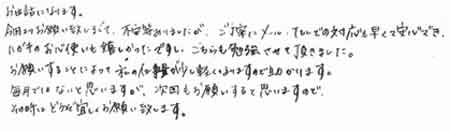 お世話になります。
今回よりお願い致しまして、不安等ありましたが、ご丁寧にメール・TELでの対応も早くて安心でき、
ハガキのお心使いも嬉しかったですし、こちらも勉強させて頂きました。
お願いすることによって私の仕事量が少し軽くなりますので助かります。
毎月ではないと思いますが、次回もお願いすると思いますので、
その時はどうぞ宜しくお願い致します。